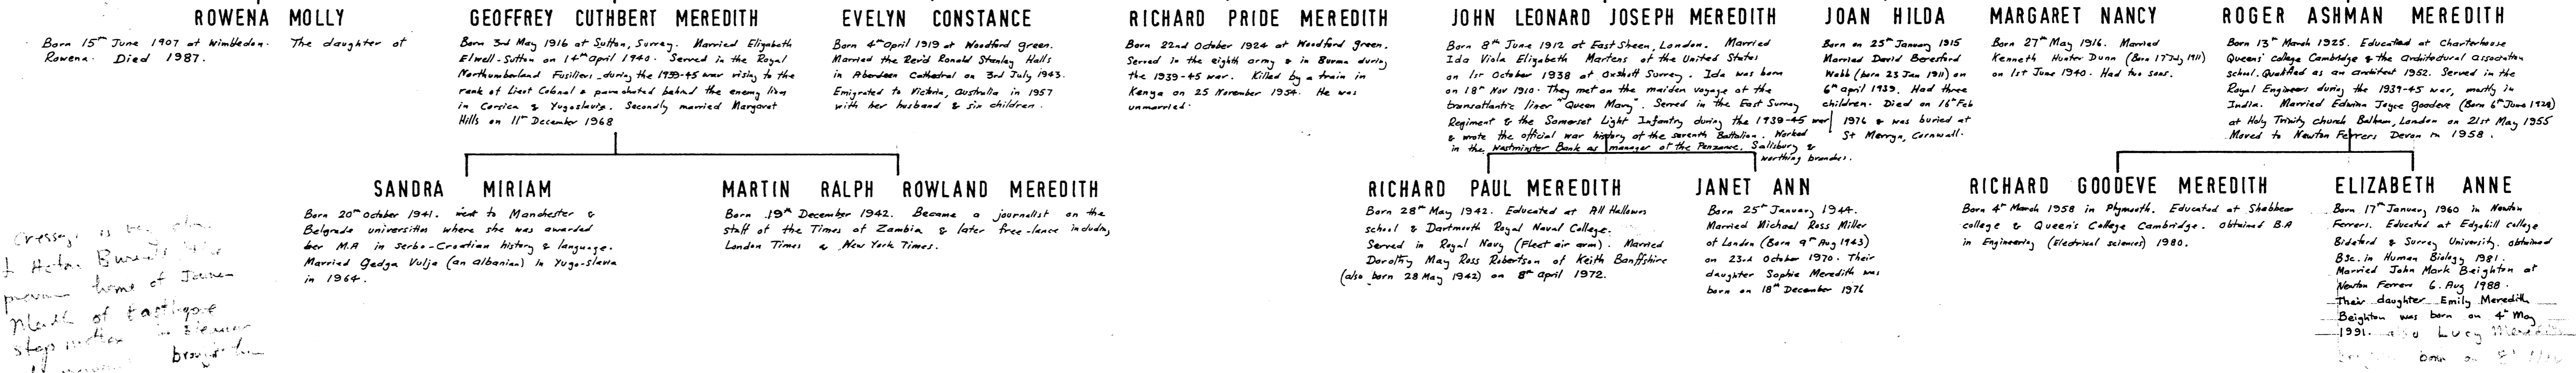 ROWENA MOLLY
Born 15th June 1907 at Wimbledon. The daughter of
Rowena. Died 1987.
GEOFFREY CUTHBERT MEREDITH
Born 3rd May 1916 at Sutton, Surrey. Married Elizabeth
Elwell-Sutton on 14th April 1940. Served in the Royal
Northumberland Fusiliers during the 1939-45 war rising to the
rank of Lieut Colonal & parachuted behind the enemy lines
in Corsica & Yugoslavia. Secondly married Margaret
Hills on 11th December 1968
EVELYN CONSTANCE
Born 4th April 1919 at Woodford green.
Married the Rev'd Ronald Stanley Halls
in Aberdeen Cathedral on 3rd July 1943.
Emigrated to Victoria, Australia in 1957
with her husband & six children.
RICHARD PRIDE MEREDITH
Born 22nd October 1924 at Woodford green.
Served in the eighth army & in Burma during
the 1939-45 war. Killed by a train in
Kenya on 25 November 1954. He was
unmarried.
JOHN LEONARD JOSEPH MEREDITH
Born 8th June 1912 at East Sheen, London. Married
Ida Viola Elizabeth Martens of the United States
on 1st October 1938 at Oxshott Surrey. Ida was born
on 18th Nov 1910. They met on the maiden voyage of the
transatlantic liner "Queen Mary". Served in the East Surrey
Regiment & the Somerset Light Infantry during the 1939-45 war
& wrote the official war history of the seventh Battalion. Worked
in the Westminster Bank as manager of the Penzance, Salisbury &
Worthing branches.
JOAN HILDA
Born on 25th January 1915
Married David Beresford
Webb (born 23 Jan 1911) on
6th April 1939. Had three
children. Died on 16th Feb
1976 & was buried at
St Merryn, Cornwall.
MARGARET NANCY
Born 27th May 1916. Married
Kenneth Hunter Dunn (Born 17 July 1911)
on 1st June 1940. Had two sons.
ROGER ASHMAN MEREDITH
Born 13th March 1925. Educated at Charterhouse
Queens' college Cambridge & the architectural association
school. Qualified as an architect 1952. Served in the
Royal Engineers during the 1939-45 war, mostly in
India. Married Edwina Joyce Goodeve (Born 6th June 1928)
at Holy Trinity church Balham, London on 21st May 1955
Moved to Newton Ferrers Devon in 1958.
SANDRA MIRIAM
Born 20th October 1941. went to Manchester &
Belgrade universities where she was awarded
her M.A in Serbo-Croatian history & language.
Married Gedga Vulja (an Albanian) in Yugo-slavia
in 1964.
MARTIN RALPH ROWLAND MEREDITH
Born 19th December 1942. Became a journalist on the
staff of the Times of Zambia & later free-lance including
London Times & New York Times.
RICHARD PAUL MEREDITH
Born 28th May 1942. Educated at All Hallows
school & Dartmouth Royal Naval College.
Served in Royal Navy (Fleet air arm). Married
Dorothy May Ross Robertson of Keith Banffshire
(also born 28 May 1942) on 8th April 1972.
JANET ANN
Born 25th January 1944.
Married Michael Ross Miller
of London (Born 9th Aug 1943)
on 23rd October 1970. Their
daughter Sophie Meredith was
born on 18th December 1976
RICHARD GOODEVE MEREDITH
Born 4th March 1958 in Plymouth. Educated at Shebbear
college & Queen's College Cambridge. obtained B.A
in Engineering (Electrical sciences) 1980.
ELIZABETH ANNE
Born 17th January 1960 in Newton
Ferrers. Educated at Edgehill college
Bideford & Surrey University. obtained
BSc. in Human Biology 1981.
Married John Mark Beighton at
Newton Ferrers 6. Aug 1988.
Their daughter Emily Meredith
Beighton was born on 4th May
1991. also Lucy Meredith
born on 8th
Cressage is
Acton Burnell
home of James
of Easthope
step mother Eleanor
brought